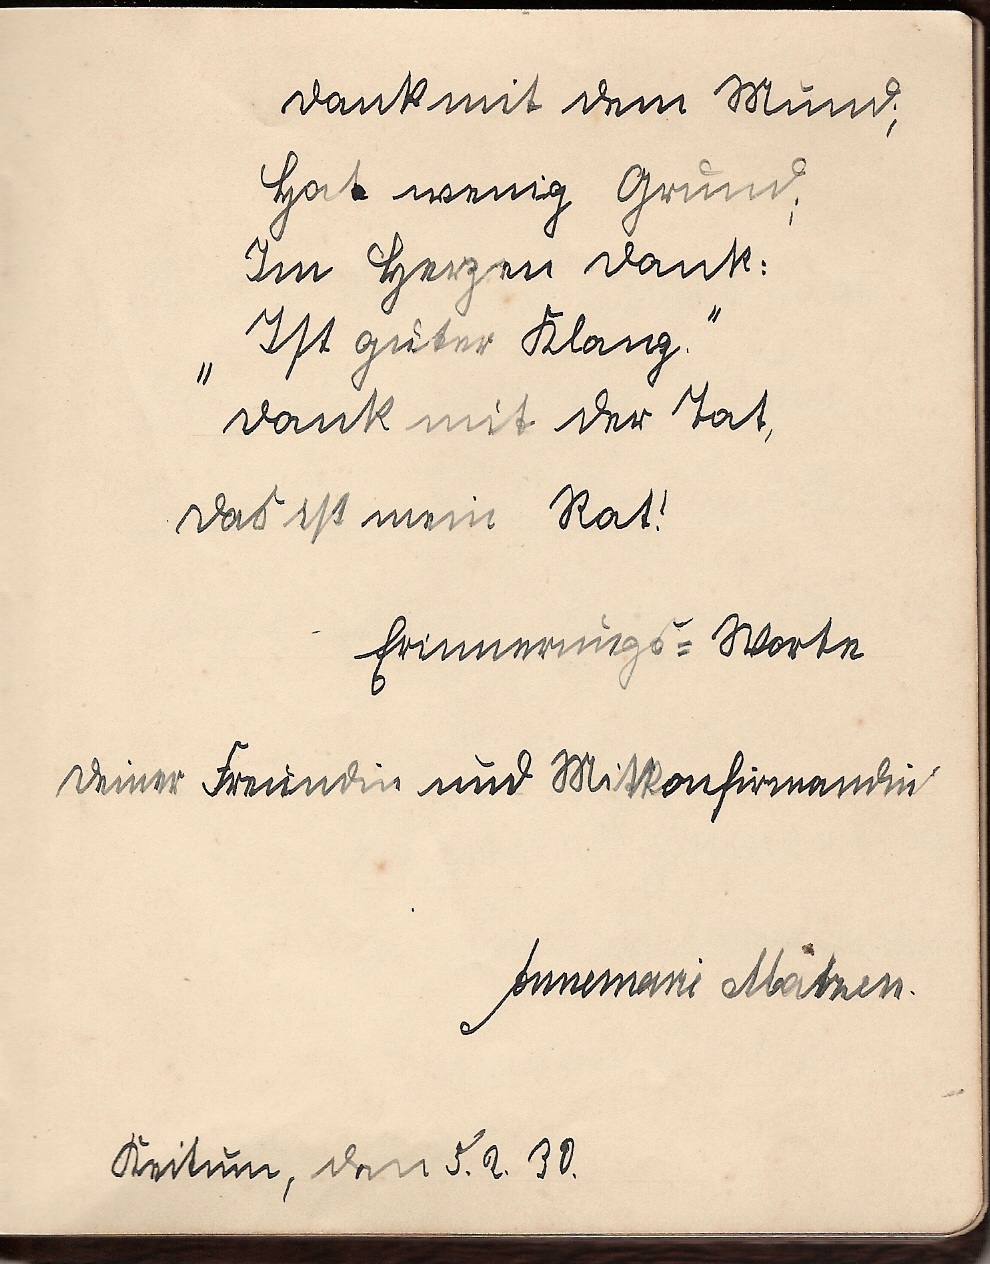 Dank mit dem Mund;
Hat wenig Grund;
Im Herzen Dank:
Ist guter Klang."
"Dank mit der Tat,
Das ist mein Rat!
Erinnerungs= Worte
Deiner Freundin und Mitkonfirmandin
Annemarie
Keitum, den 5. 2. 30.